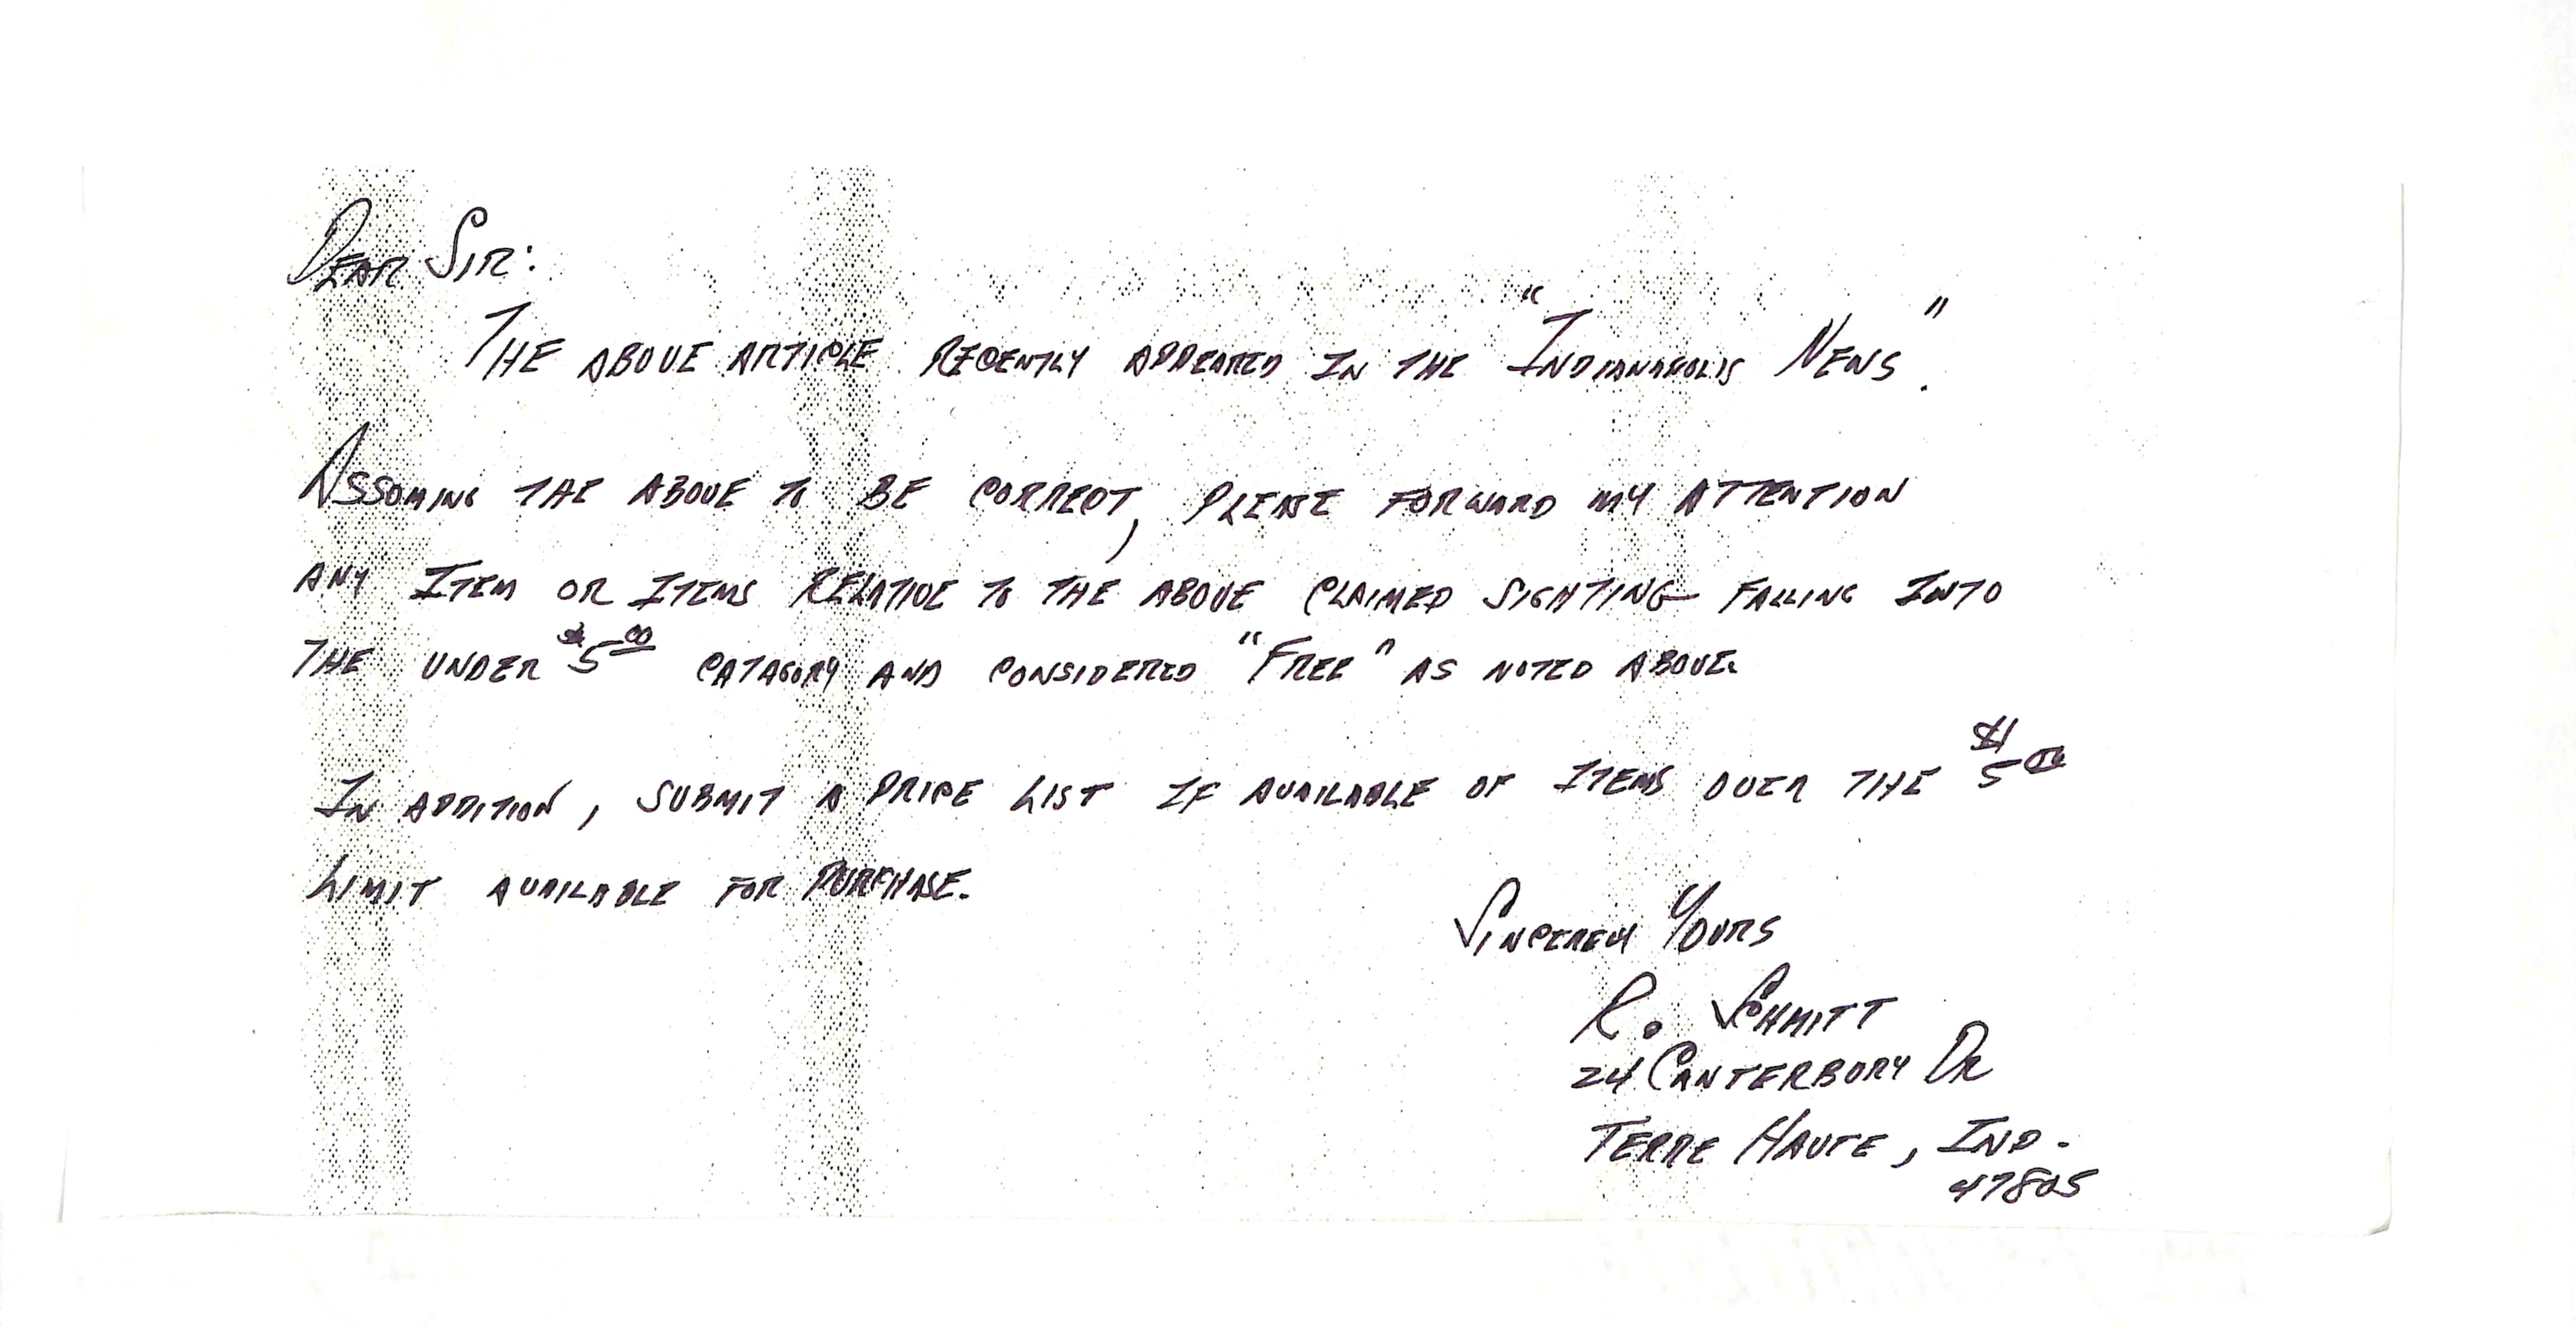 Dear Sir:
The above article recently appeared in the "Indianapolis News".
Assuming the above to be correct, please forward my attention
any item or items relative to the above claimed sighting falling into
the under $5.00 catagory and considered "Free" as noted above.
In addition, submit a price list if available of items over the $5.00
limit available for purchase.
Sincerely Yours
R. Schmitt
24 Canterbury Dr
Terre Haute, Ind.
47805